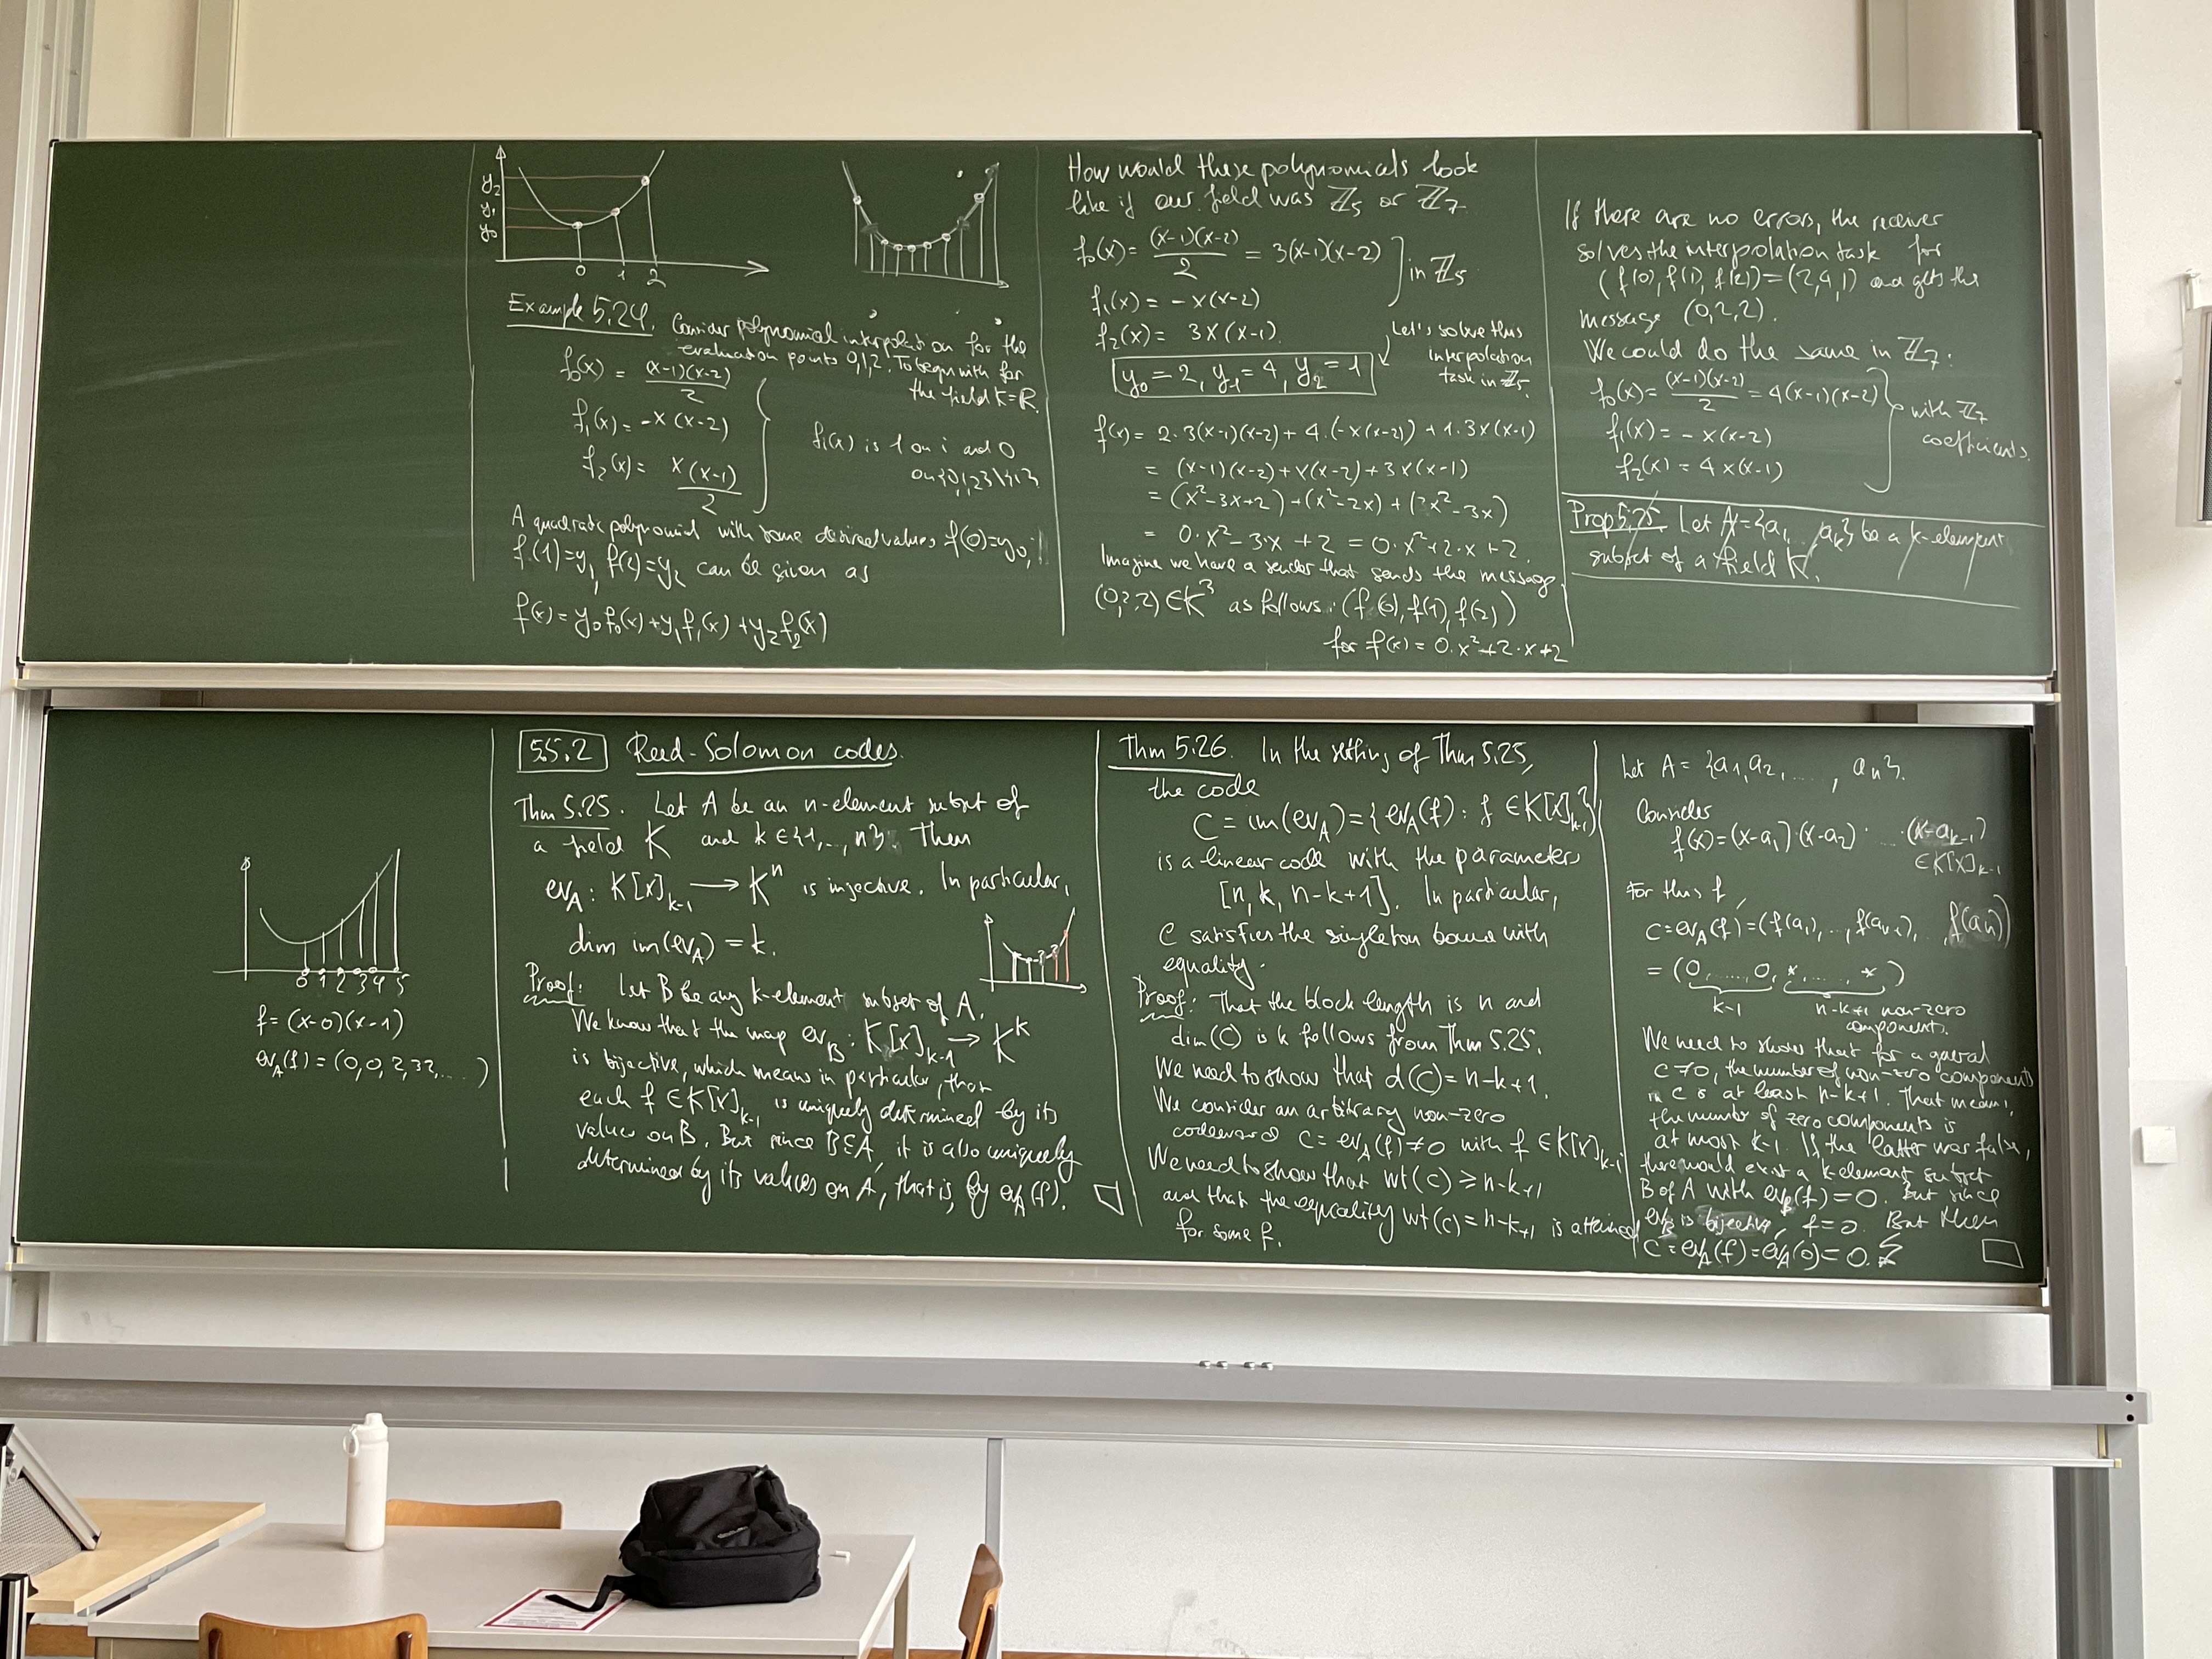 y₂
y₁
y₀
0 1 2
Example 5.24. Consider polynomial interpolation for the
evaluation points 0,1,2. To begin with for
the field K=ℝ.
f₀(x) = (x-1)(x-2)/2
f₁(x) = -x(x-2)
f₂(x) = x(x-1)/2
fᵢ(x) is 1 on i and 0
on {0,1,2}\{i}
A quadratic polynomial with some desired values f(0)=y₀,
f(1)=y₁ f(2)=y₂ can be given as
f(x)=y₀f₀(x)+y₁f₁(x)+y₂f₂(x)
How would these polynomials look
like if our field was ℤ₅ or ℤ₇
f₀(x) = (x-1)(x-2)/2 = 3(x-1)(x-2)
f₁(x) = -x(x-2)
f₂(x) = 3x(x-1)
in ℤ₅
y₀=2, y₁=4, y₂=1
Let's solve this
interpolation
task in ℤ₅.
f(x) = 2·3(x-1)(x-2)+4·(-x(x-2))+1·3x(x-1)
= (x-1)(x-2)+x(x-2)+3x(x-1)
= (x²-3x+2)+(x²-2x)+(3x²-3x)
= 0·x²-3·x+2 = 0·x²+2·x+2
Imagine we have a sender that sends the message
(0,2,2)∈K³ as follows: (f(0),f(1),f(2))
for f(x)=0·x²+2·x+2
If there are no errors, the receiver
solves the interpolation task for
(f(0),f(1),f(2))=(2,4,1) and gets the
message (0,2,2).
We could do the same in ℤ₇:
f₀(x) = (x-1)(x-2)/2 = 4(x-1)(x-2)
f₁(x) = -x(x-2)
f₂(x) = 4x(x-1)
with ℤ₇
coefficients.
Prop 5.25 Let A={a₁ aₖ} be a k-element
subset of a field K.
0 1 2 3 4 5
f=(x-0)(x-1)
ev_A(f)=(0,0,2,32,....)
5.5.2 Reed-Solomon codes.
Thm 5.25. Let A be an n-element subset of
a field K and k∈{1,..,n}. Then
ev_A: K[x]ₖ₋₁ → Kⁿ is injective. In particular,
dim im(ev_A) = k.
Proof: Let B be any k-element subset of A.
We know that the map ev_B: K[x]ₖ₋₁ → Kᵏ
is bijective, which means in particular, that
each f∈K[x]ₖ₋₁ is uniquely determined by its
values on B. But since B⊆A, it is also uniquely
determined by its values on A, that is, by ev_A(f). □
Thm 5.26. In the setting of Thm 5.25,
the code
C = im(ev_A) = {ev_A(f) : f∈K[x]ₖ₋₁}
is a linear code with the parameters
[n, k, n-k+1]. In particular,
C satisfies the singleton bound with
equality.
Proof: That the block length is n and
dim(C) is k follows from Thm 5.25.
We need to show that d(C)=n-k+1.
We consider an arbitrary non-zero
codeword c = ev_A(f)≠0 with f∈K[x]ₖ₋₁
We need to show that wt(c)≥n-k+1
and that the equality wt(c)=n-k+1 is attained
for some f.
Let A = {a₁,a₂,....., aₙ}.
Consider
f(x)=(x-a₁)·(x-a₂)· ....·(x-aₖ₋₁)
∈K[x]ₖ₋₁
For this f,
c=ev_A(f)=(f(a₁),..,f(aₖ₋₁),..,f(aₙ))
= (0,.....,0,*,....,*)
k-1 n-k+1 non-zero
components.
We need to show that for a general
c≠0, the number of non-zero components
in c is at least n-k+1. That means,
the number of zero components is
at most k-1. If the latter was false,
there would exist a k-element subset
B of A with ev_B(f)=0. But since
ev_B is bijective, f=0. But then
c=ev_A(f)=ev_A(0)=0. ↯ □